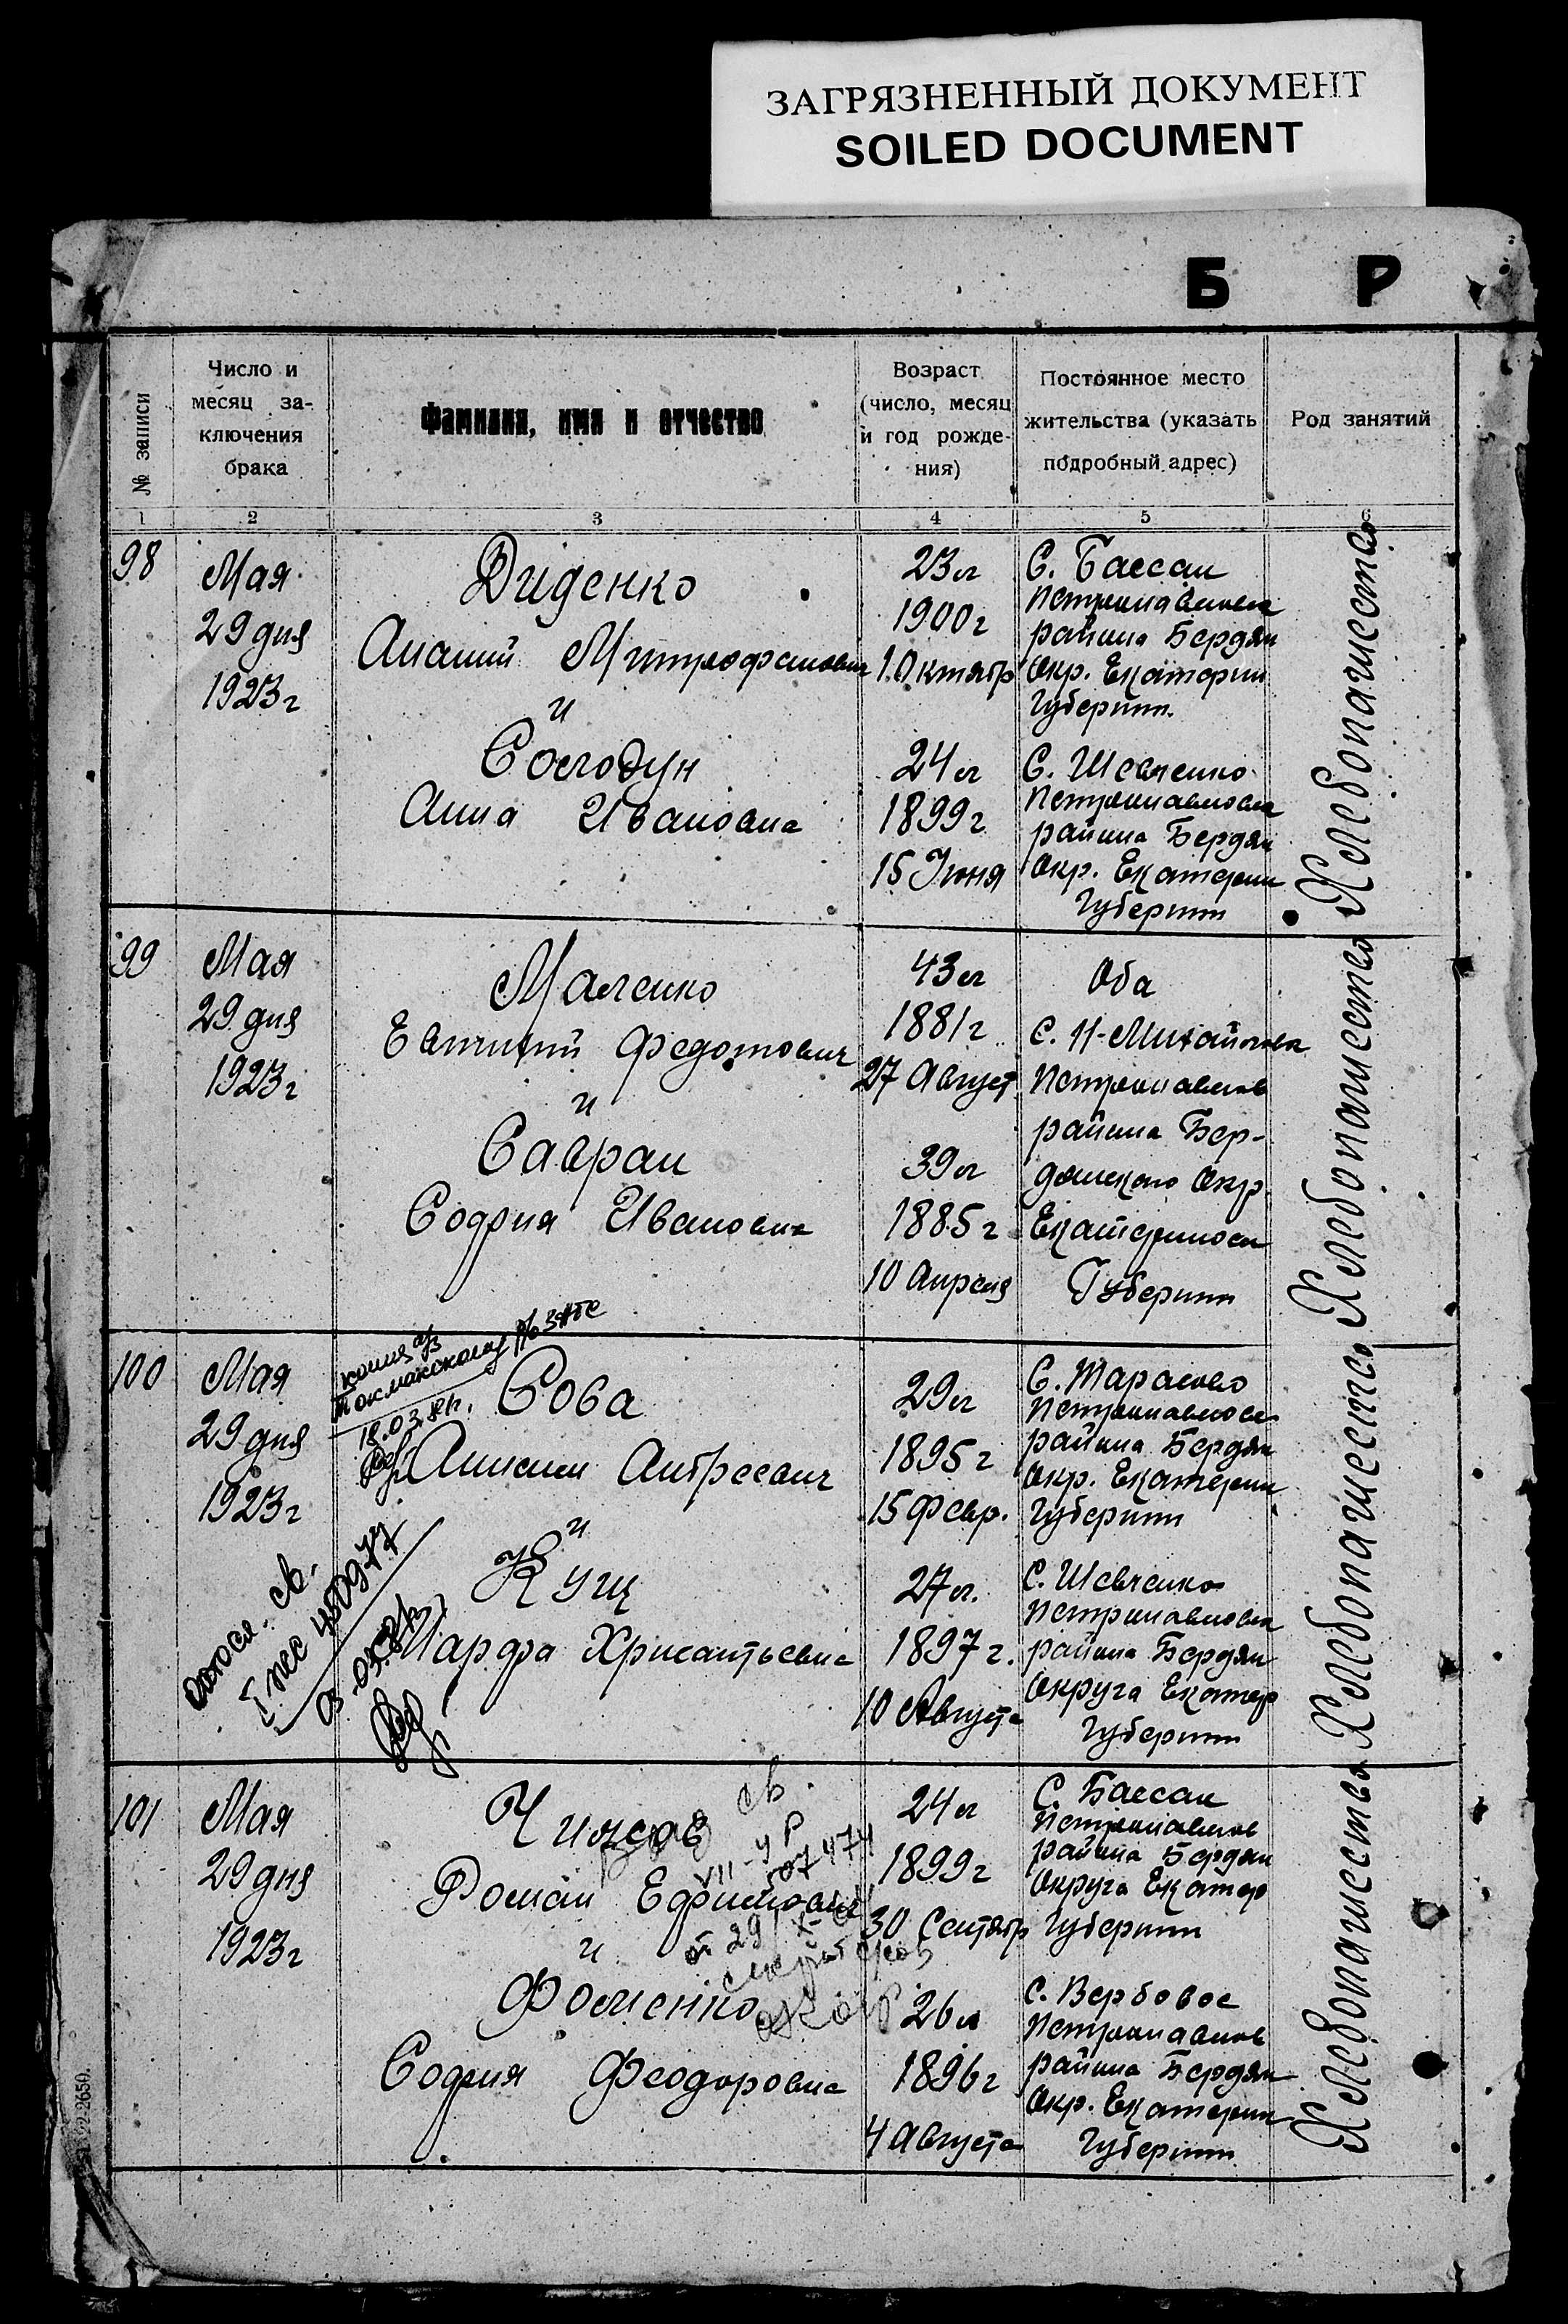 ЗАГРЯЗНЕННЫЙ ДОКУМЕНТ
SOILED DOCUMENT
Б Р
№ записи
Число и
месяц за-
ключения
брака
Фамилия, имя и отчество
Возраст
(число, месяц
и год рожде-
ния)
Постоянное место
жительства (указать
подробный адрес)
Род занятий
1 2 3 4 5 6
98
Мая
29 дня
1923 г
Диденко
Ананий Митрофанович
и
Солодун
Анна Ивановна
23 л
1900 г
1 Октябр
24 л
1899 г
15 Июня
С. Бассан
Петропавловск
района Бердян
Окр. Екатерин
Губернии.
С. Шевченко
Петропавловск
района Бердян
Окр. Екатерин
Губернии
Хлебопашество
99
Мая
29 дня
1923 г
Маленко
Евтихий Федотович
и
Савран
София Ивановна
43 л
1881 г
27 Август
39 л
1885 г
10 Апреля
Оба
с. Н-Михайловка
Петропавлов
района Бер-
дянского Окр.
Екатериносл
Губернии
Хлебопашество
100
Мая
29 дня
1923 г
копия
Токмакскому ЗАГС
18.03
Сова
Анисим Андреевич
и
Кущ
Марфа Хрисантьевна
св.
29 л
1895 г
15 Февр.
27 л.
1897 г.
10 Августа
С. Тарасово
Петропавловск
района Бердян
Окр. Екатерин
Губернии
С. Шевченко
Петропавловск
района Бердян
Округа Екатер
Губернии
Хлебопашество
101
Мая
29 дня
1923 г
Чижов
Роман Ефимович
и
Фоменко
София Феодоровна
св.
VII-УР
24 л
1899 г
30 Сентябр
26 л
1896 г
4 Августа
С. Бассан
Петропавлов
района Бердян
Округа Екатер
Губернии
С. Вербовое
Петропавлов
района Бердян
Окр. Екатерин
Губернии
Хлебопашество
22-2650.